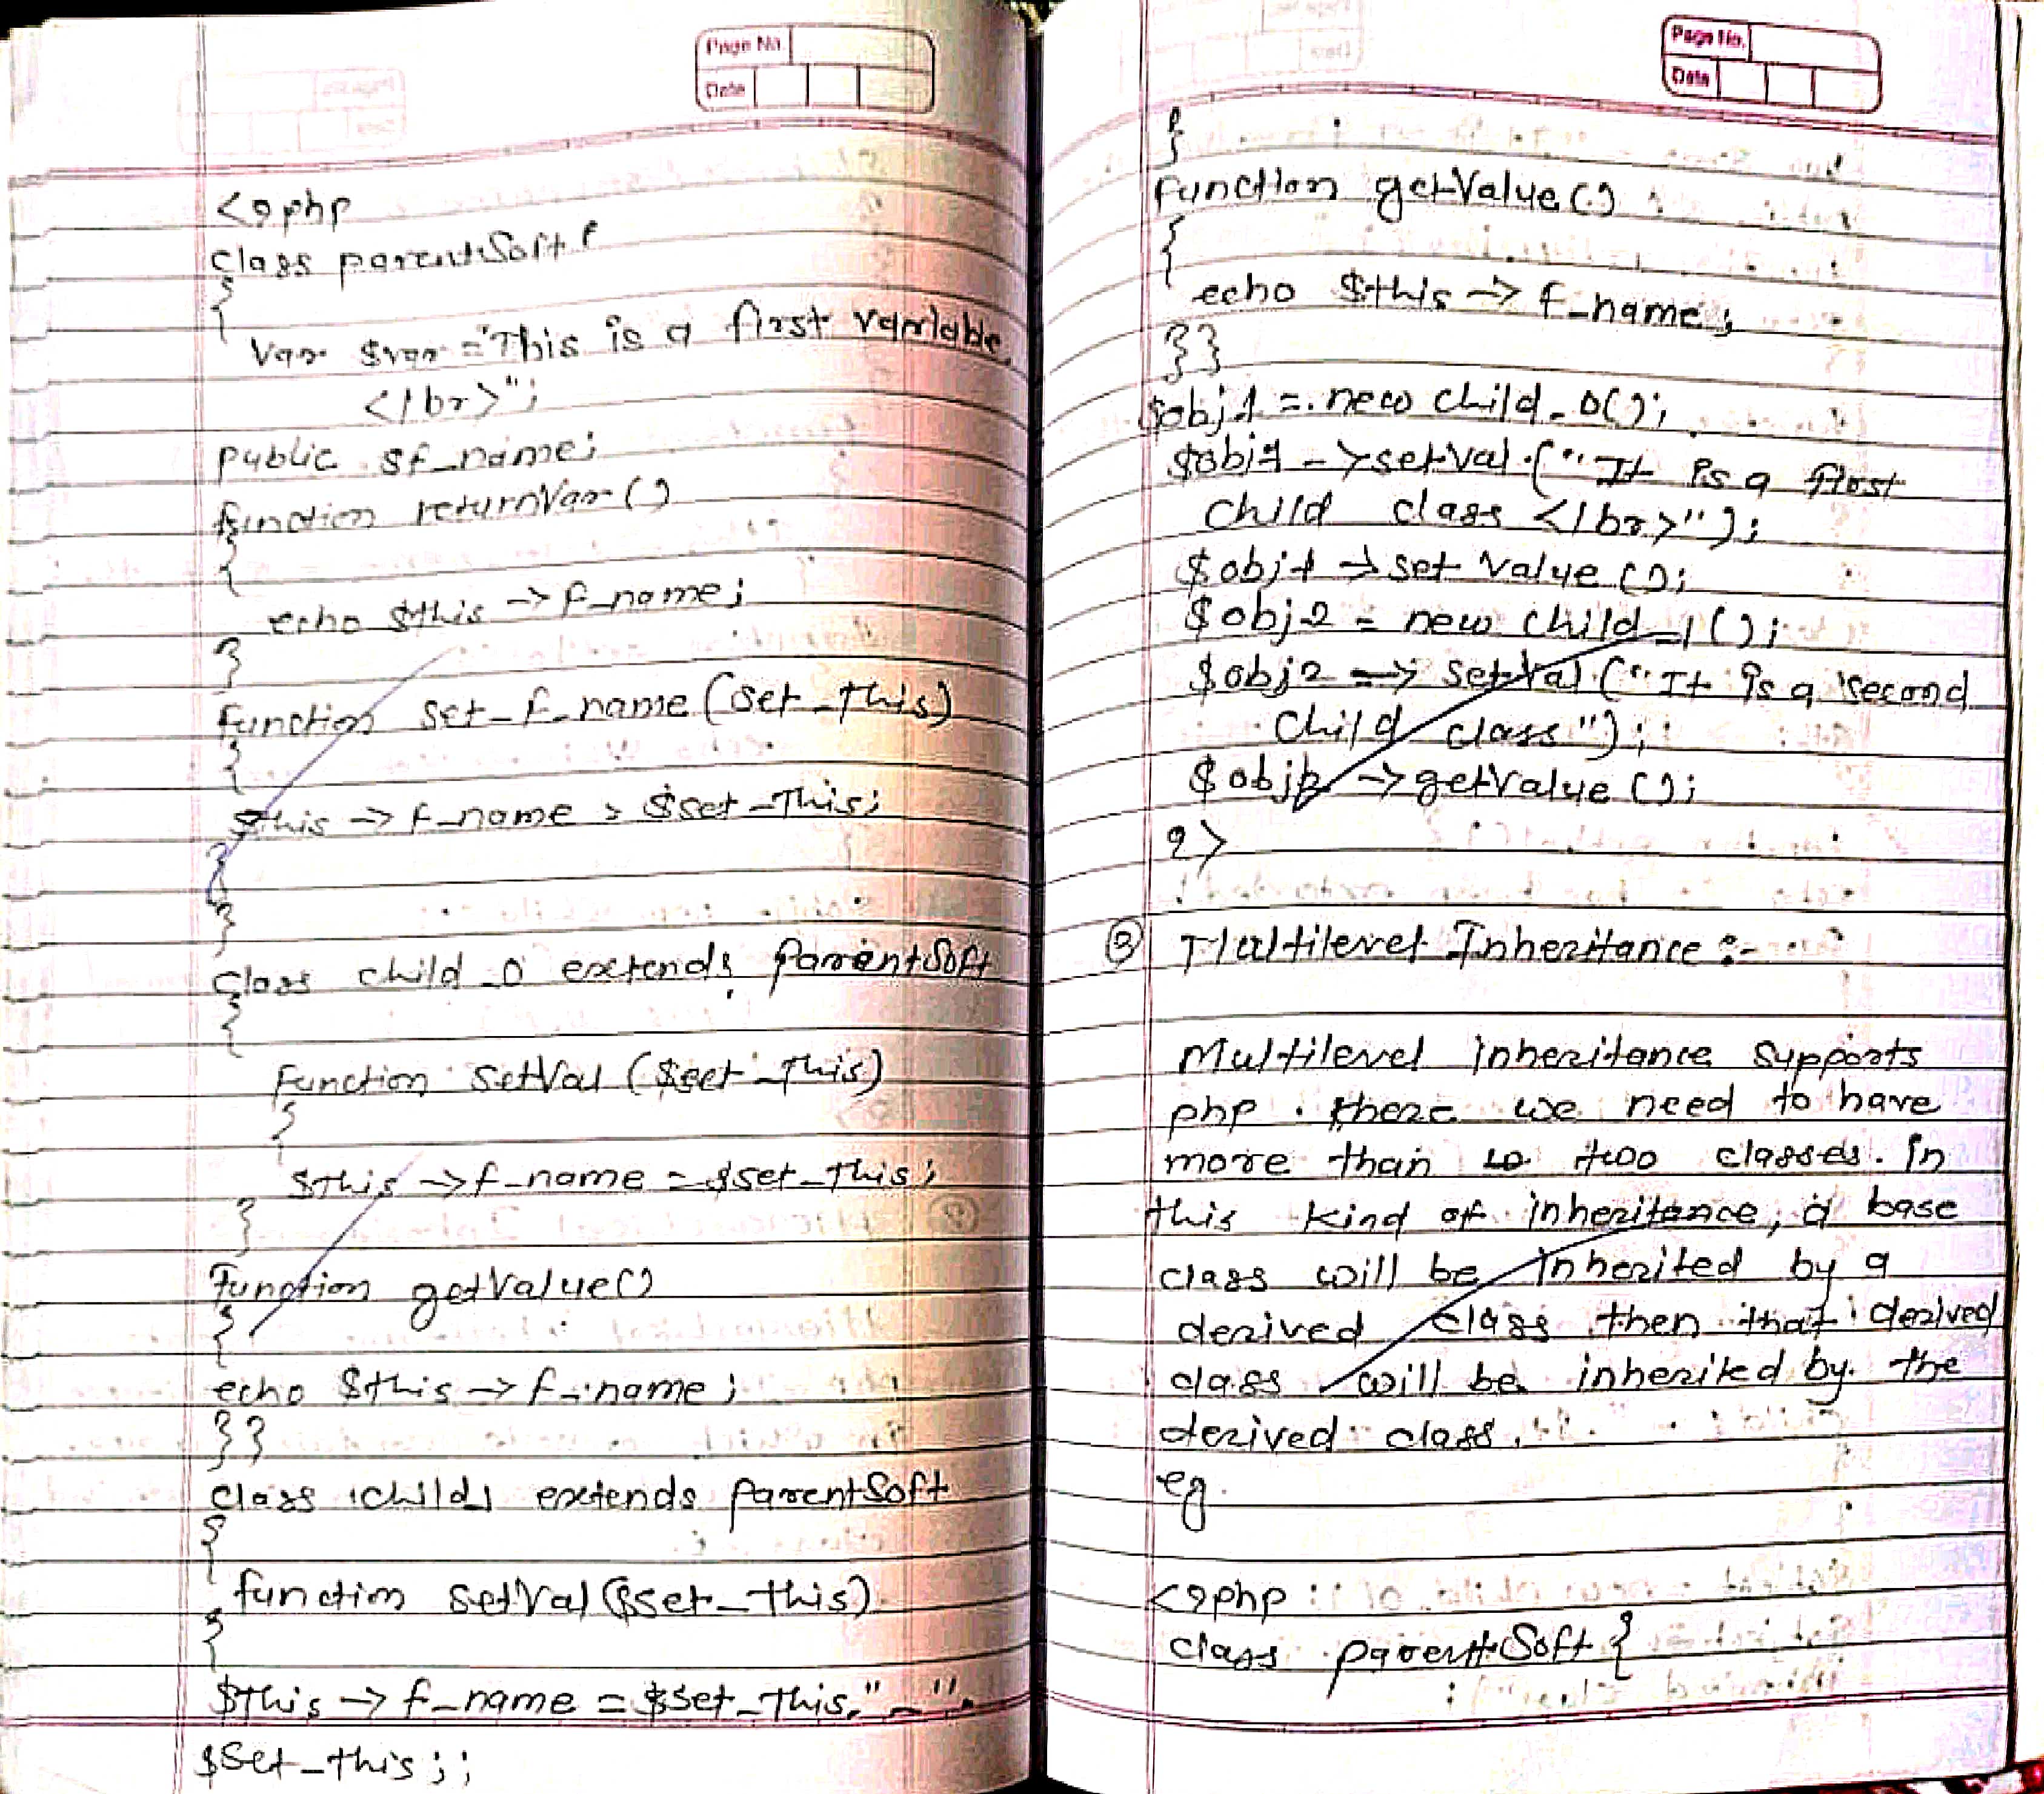 Page No.
Date
<?php
class parentSoft {
{
Var $var ="This is a first variable
</br>";
public $f_name;
function returnVar()
{
echo $this -> f_name;
}
function set_f_name (set_this)
{
$this -> f_name = $set_This;
}
}
class child_0 extends parentSoft
{
Function SetVal ($set_This)
{
$this -> f_name = $set_This;
}
Function getValue()
{
echo $this -> f_name;
}}
class child_1 extends parentSoft
{
function setVal ($set_this)
{
$this -> f_name = $set_this."_".
$set_this;;
Page No.
Date
}
Function getValue()
{
echo $this -> f_name;
}}
$obj1 = new child_0();
$obj1 -> setVal ("It is a first
child class </br>");
$obj1 -> set Value ();
$obj2 = new child_1();
$obj2 => setVal ("It is a second
child class");
$obj2 -> getValue ();
?>
③ Multilevel Inheritance :-
Multilevel inheritance supports
php. there we need to have
more than to two classes. In
this kind of inheritance, a base
class will be inherited by a
derived class then that derived
class will be inherited by the
derived class.
eg.
<?php
class parentSoft {